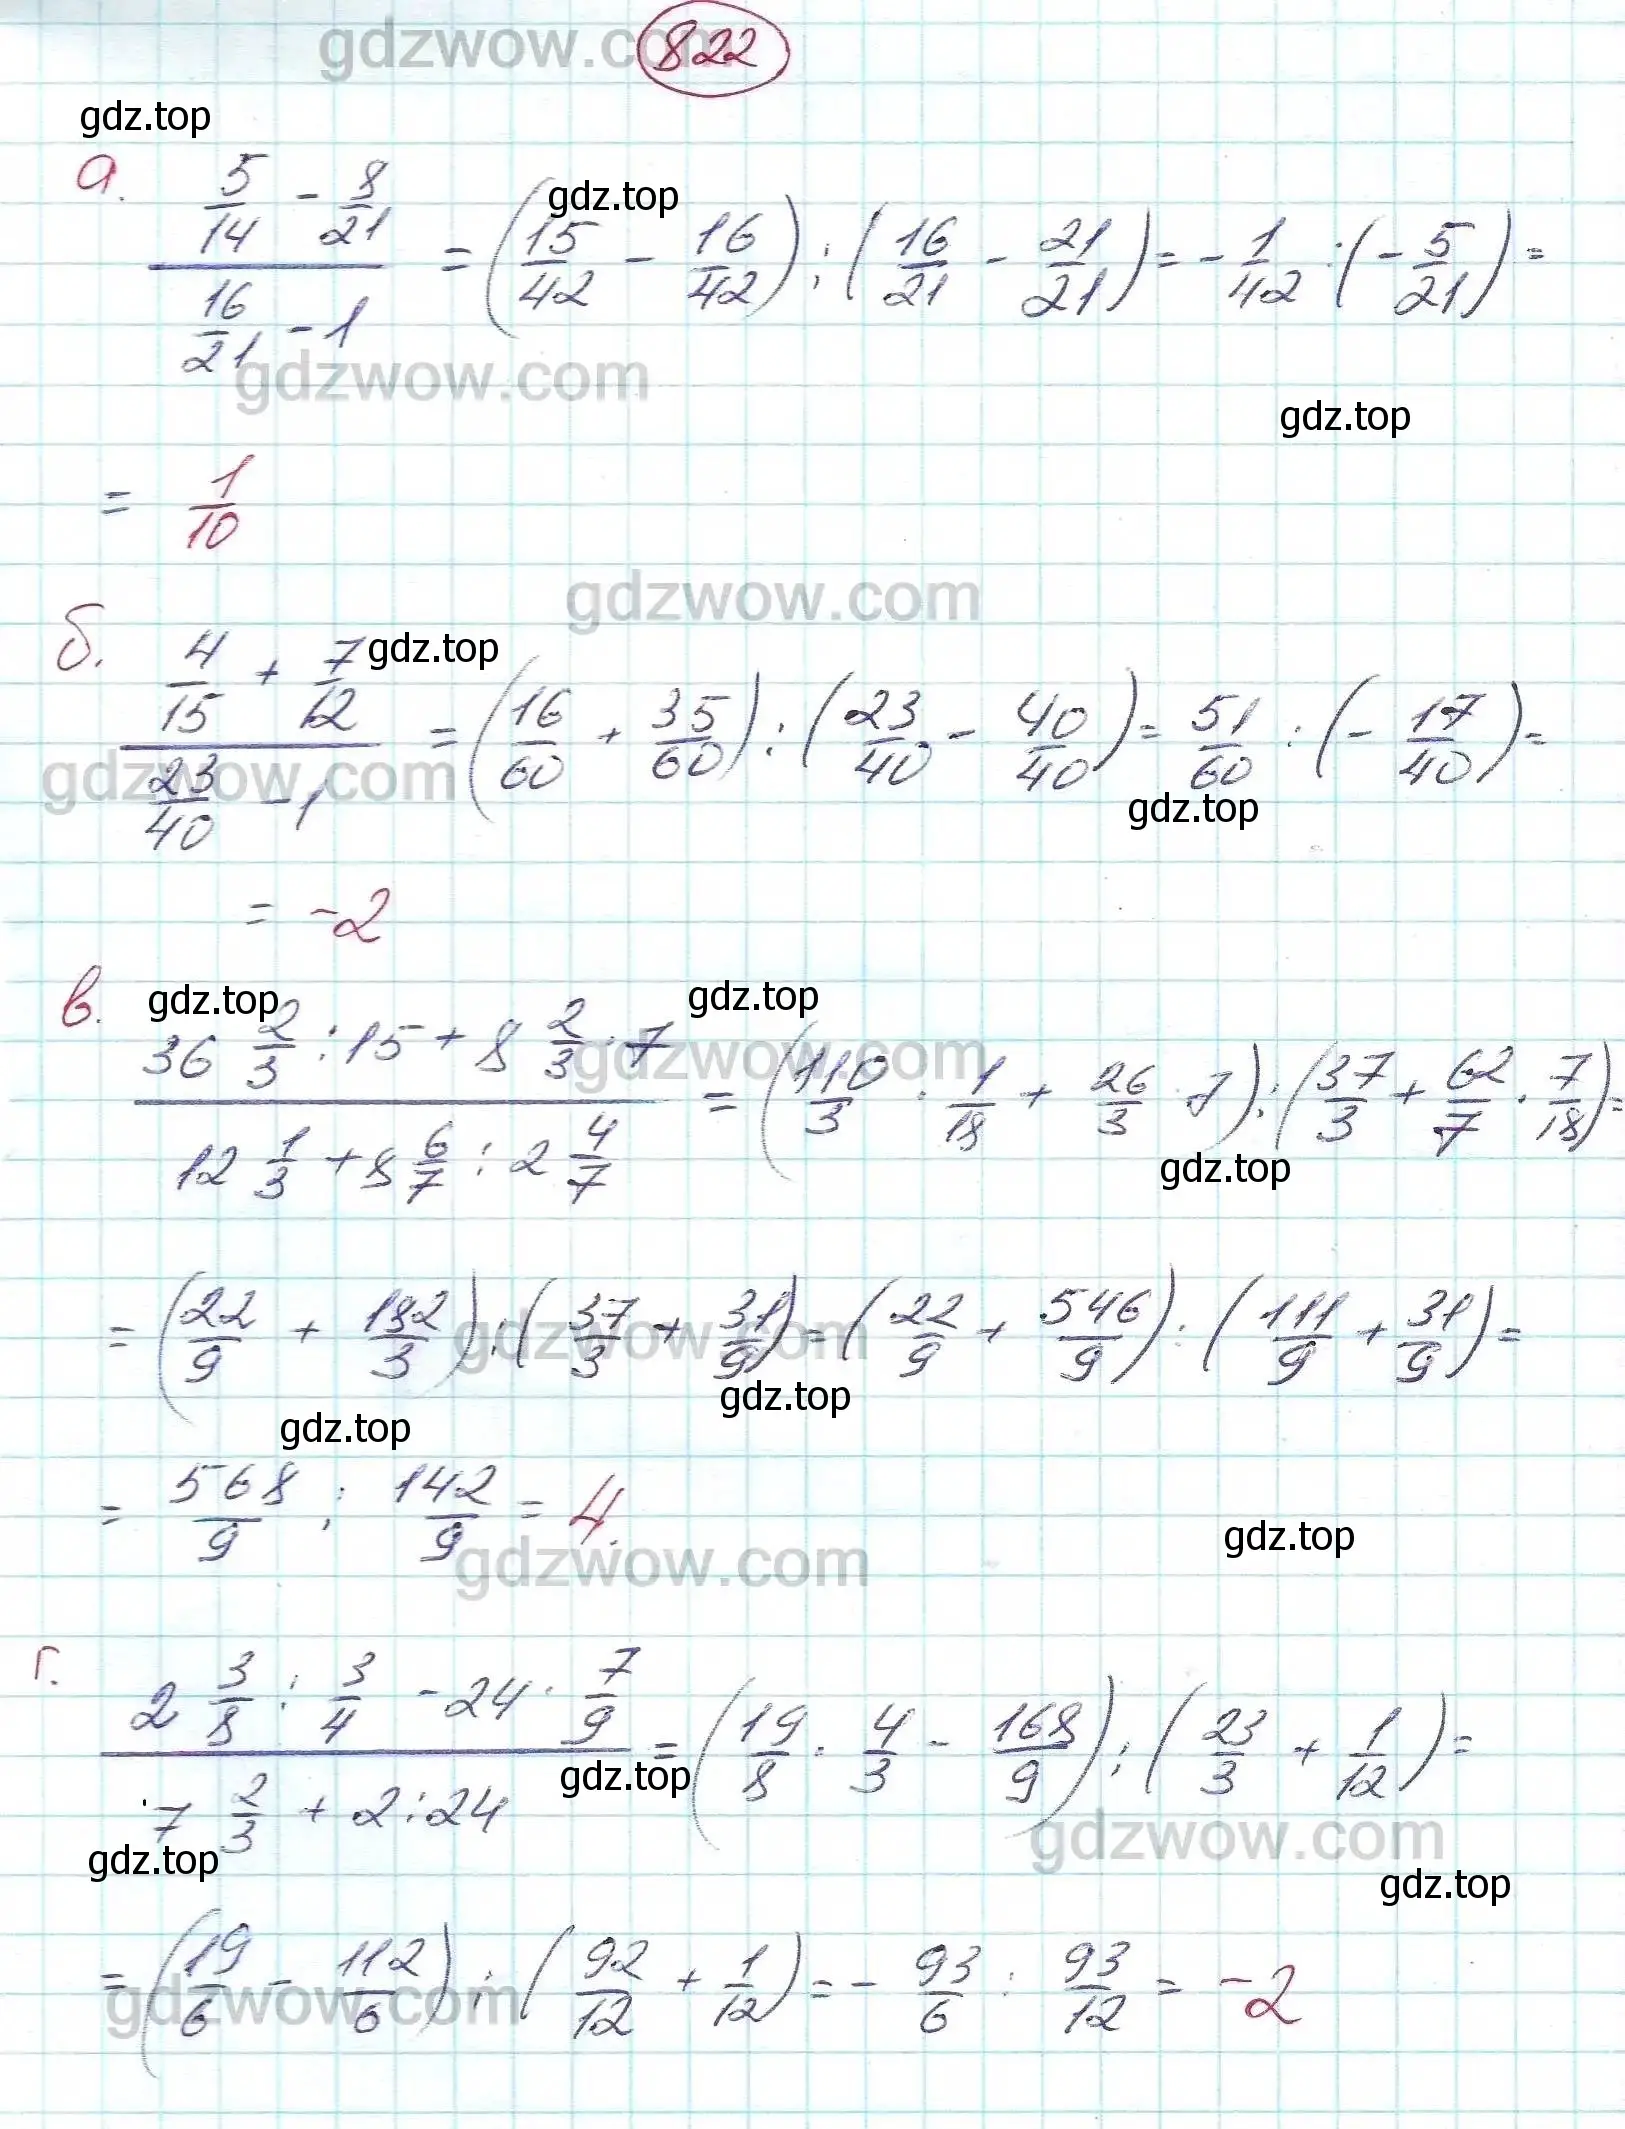 gdzwow.com
822
gdz.top
gdz.top
а. (5/14 - 8/21)/(16/21 - 1) = (15/42 - 16/42) : (16/21 - 21/21) = -1/42 : (-5/21) =
gdzwow.com
gdz.top
= 1/10
gdzwow.com
gdz.top
б. (4/15 + 7/12)/(23/40 - 1) = (16/60 + 35/60) : (23/40 - 40/40) = 51/60 : (-17/40) =
gdzwow.com
gdz.top
= -2
gdz.top
gdz.top
в. (36 2/3 : 15 + 8 2/3 · 7)/(12 1/3 + 8 6/7 : 2 4/7) = (110/3 · 1/18 + 26/3 · 7) : (37/3 + 62/7 · 7/18) =
gdzwow.com
gdz.top
= (22/9 + 182/3) : (37/3 + 31/9) = (22/9 + 546/9) : (111/9 + 31/9) =
gdzwow.com
gdz.top
gdz.top
= 568/9 : 142/9 = 4.
gdz.top
gdzwow.com
г. (2 3/8 : 3/4 - 24 · 7/9)/(7 2/3 + 2 : 24) = (19/8 · 4/3 - 168/9) : (23/3 + 1/12) =
gdz.top
gdzwow.com
gdz.top
gdz.top
= (19/6 - 112/6) : (92/12 + 1/12) = - 93/6 : 93/12 = -2
gdzwow.com